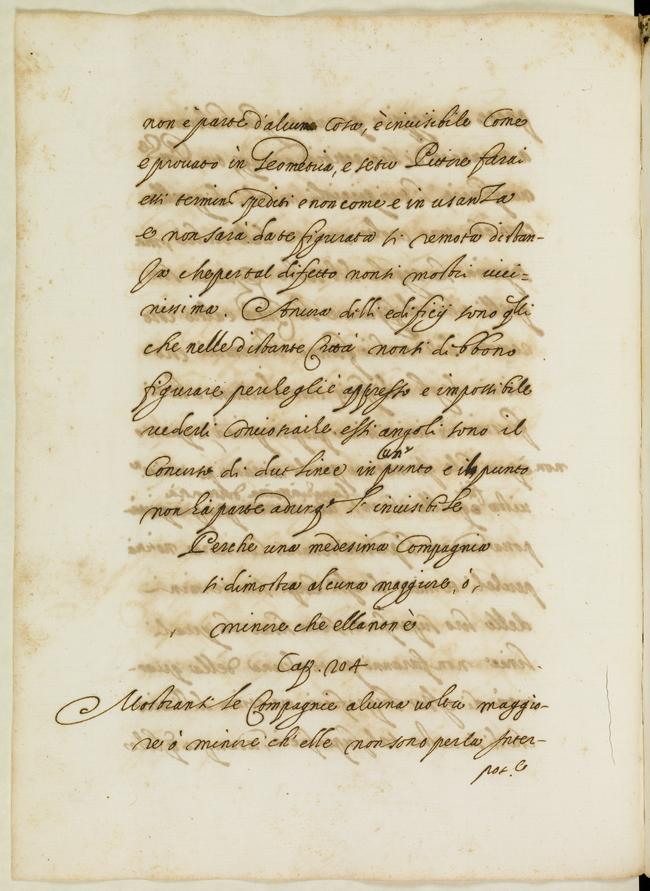 non è parte d'alcuna cosa, è invisibile Come
e provato in Geometria, e se tu Pittore farai
essi termini spediti e non come e in usanza
e non sarà da te figurata si remota distan-
za che per tal difetto non si mostri vici=
nissima. Ancora dilli edificij sono gli
che nelle distante Città non si dibbono
figurare perche gli è appresso e impossibile
vederli Conciosiache essi angoli sono il
Concurso di due linee in un punto e il punto
non hà parte adunq. è invisibile
Perche una medesima Compagnia
si dimostra alcuna maggiore, ò,
minore che ella non è
Cap. 204
Mostransi le Compagnie alcuna volta maggio-
re ò minore ch'elle non sono per la Inter-